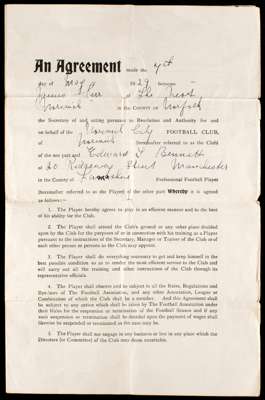 An Agreement made the 4th
day of May 1929 between
James Kerr of The Nest
Norwich in the COUNTY OF Norfolk
the Secretary of and acting pursuant to Resolution and Authority for and
on behalf of the Norwich City FOOTBALL CLUB,
of Norwich (hereinafter referred to as the Club)
of the one part and Edward T. Bennett
of 20 Ridgeway Street Manchester
in the County of Lancashire Professional Football Player
(hereinafter referred to as the Player) of the other part Whereby it is agreed
as follows:—
1. The Player hereby agrees to play in an efficient manner and to the best
of his ability for the Club.
2. The Player shall attend the Club's ground or any other place decided
upon by the Club for the purposes of or in connection with his training as a Player
pursuant to the instructions of the Secretary, Manager or Trainer of the Club or of
such other person or persons as the Club may appoint.
3. The Player shall do everything necessary to get and keep himself in the
best possible condition so as to render the most efficient service to the Club and
will carry out all the training and other instructions of the Club through its
representative officials.
4. The Player shall observe and be subject to all the Rules, Regulations and
Bye-laws of The Football Association, and any other Association, League or
Combination of which the Club shall be a member. And this Agreement shall
be subject to any action which shall be taken by The Football Association under
their Rules for the suspension or termination of the Football Season and if any
such suspension or termination shall be decided upon the payment of wages shall
likewise be suspended or terminated as the case may be.
5. The Player shall not engage in any business or live in any place which the
Directors (or Committee) of the Club may deem unsuitable.